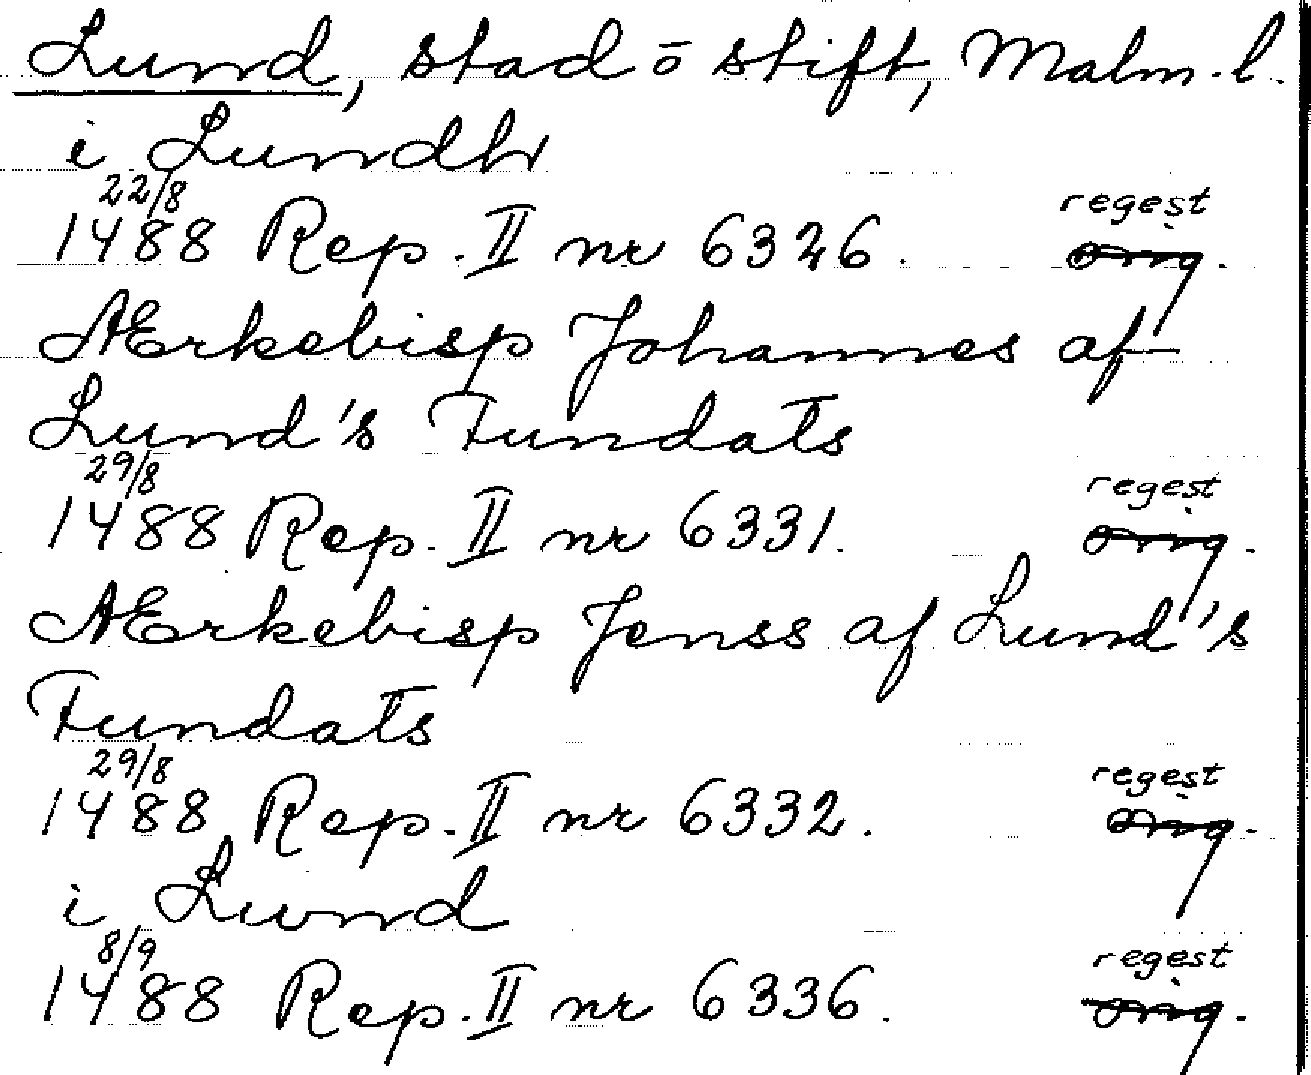 Lund, stad ō stift, Malm. l.
i Lundh
22/8 regest
1488 Rep. II nr 6326. orig.
Ærkebisp Johannes af
Lund's Fundats
29/8 regest
1488 Rep. II nr 6331. orig.
Ærkebisp Jenss af Lund's
Fundats
29/8 regest
1488 Rep. II nr 6332. orig.
i Lund
8/9 regest
1488 Rep. II nr 6336. orig.